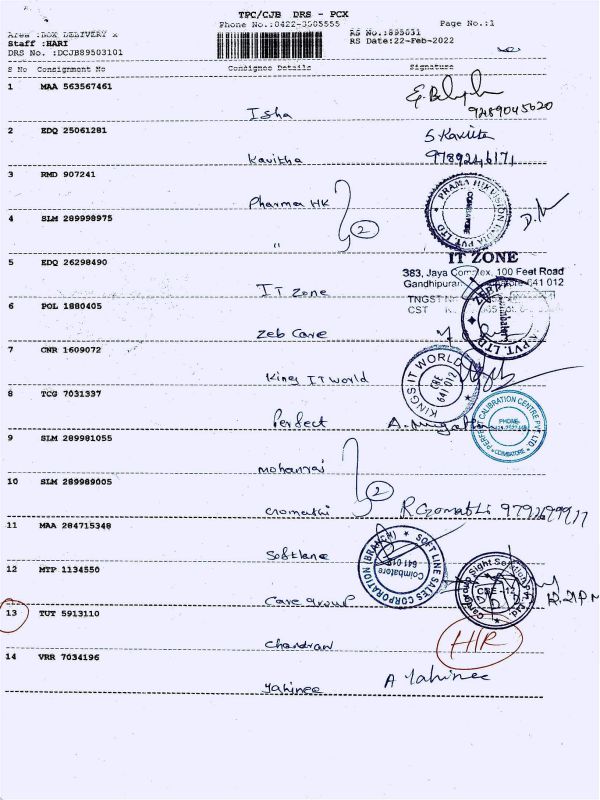 TPC/CJB DRS - PCX
Phone No.:0422-3505555 Page No.:1
Area :BOX DELIVERY x RS No.:895031
Staff :HARI RS Date:22-Feb-2022
DRS No. :DCJB89503101
S No Consignment No Consignee Details Signature
1 MAA 563567461
Isha 9489045620
2 EDQ 25061281 S. Kavitha
Kavitha
3 RMD 907241
Pharma HK
PRAMA HIKVISION INDIA PVT LTD
COIMBATORE
4 SLM 289998975 2
"
IT ZONE
5 EDQ 26298490
383, Jaya Complex, 100 Feet Road
Gandhipuram, Coimbatore 641 012
IT Zone
TNGST
CST
6 POL 1880405
Zeb Care
PVT. LTD.
7 CNR 1609072
Kings IT World
KINGS IT WORLD
CBE
641 012
8 TCG 7031337
Perfect
PERFECT CALIBRATION CENTRE PVT LTD
PHONE
COIMBATORE
9 SLM 289981055
Mohanraj
10 SLM 289989005 2
Gomathi R Gomathi
11 MAA 284715348
Softlane
SOFT LINE SALES CORPORATION (BRANCH)
Coimbatore
641 012
12 MTP 1134550
Care group
CBE - 12
13 TUT 5913110
Chandran
14 VRR 7034196
Yahinee A Yahinee